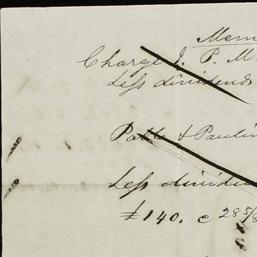 Mem
Charge J. P. M
Less dividend
& Paulin
Less divide
£140. @ 285/8